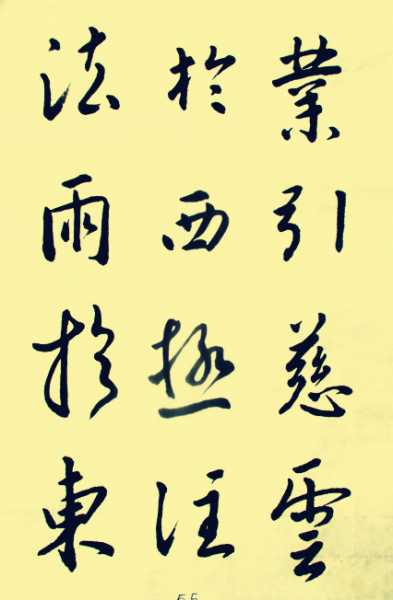 業引慈雲
於西極注
法雨於東
55